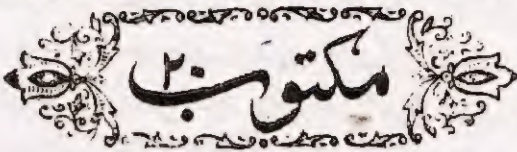 مکتوب ۲۰